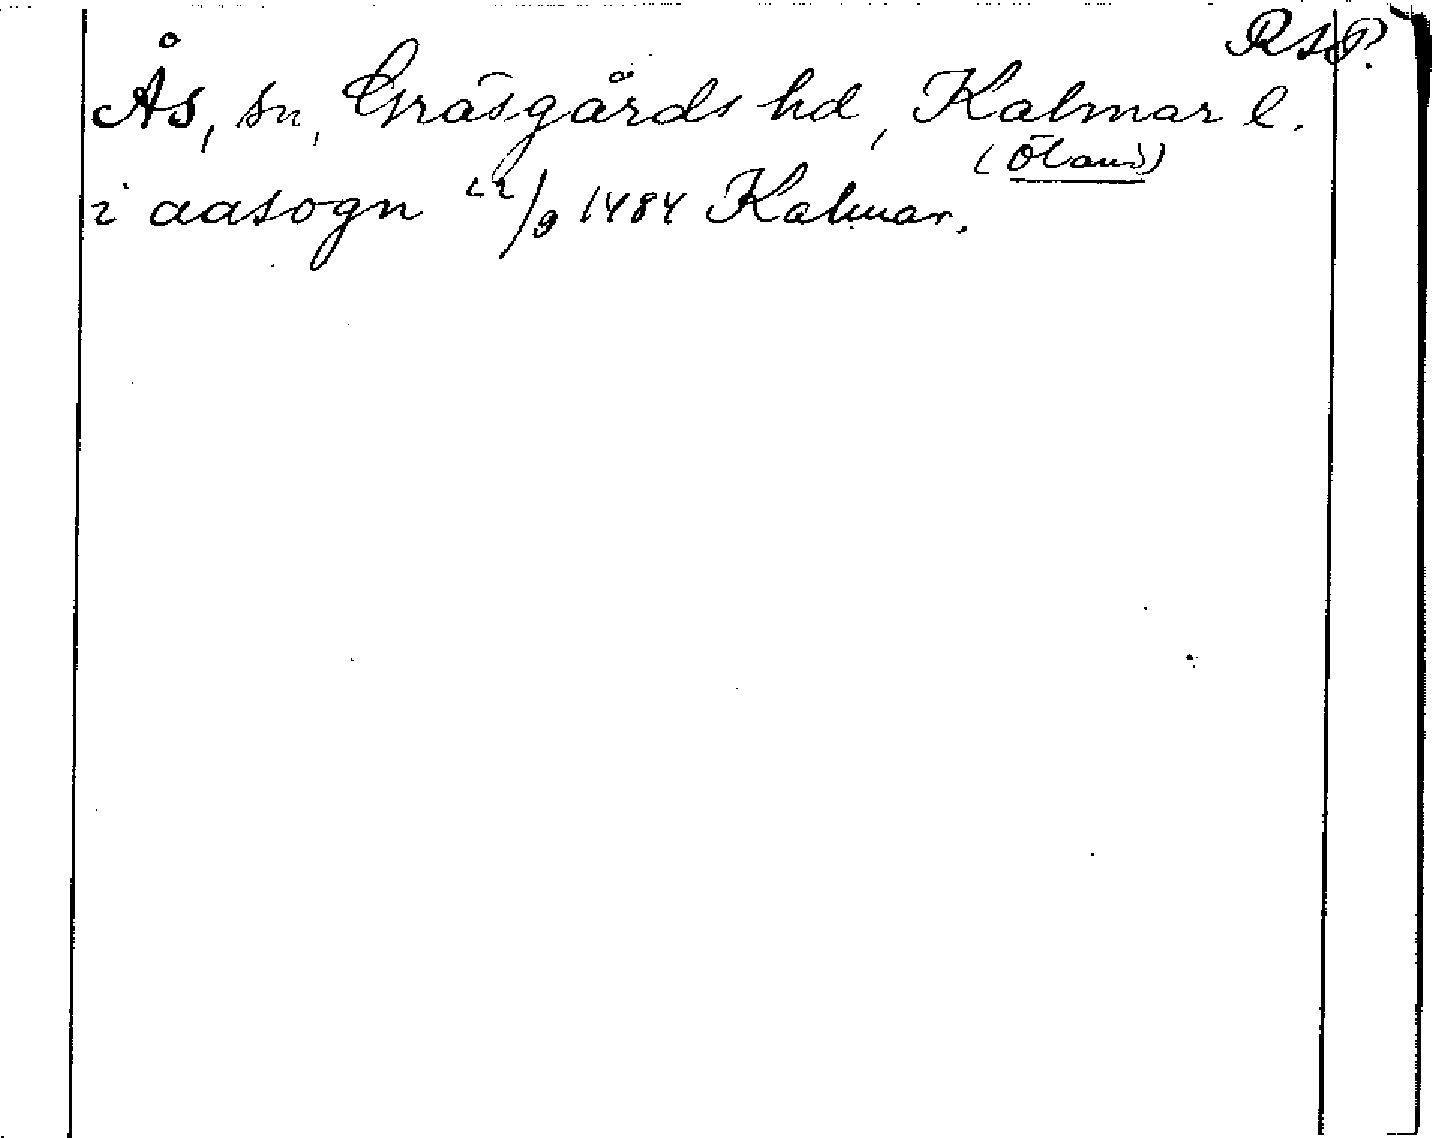 RAP.
Ås, sn, Gräsgårds hd, Kalmar l.
(Öland)
i aasogn 22/9 1484 Kalmar.